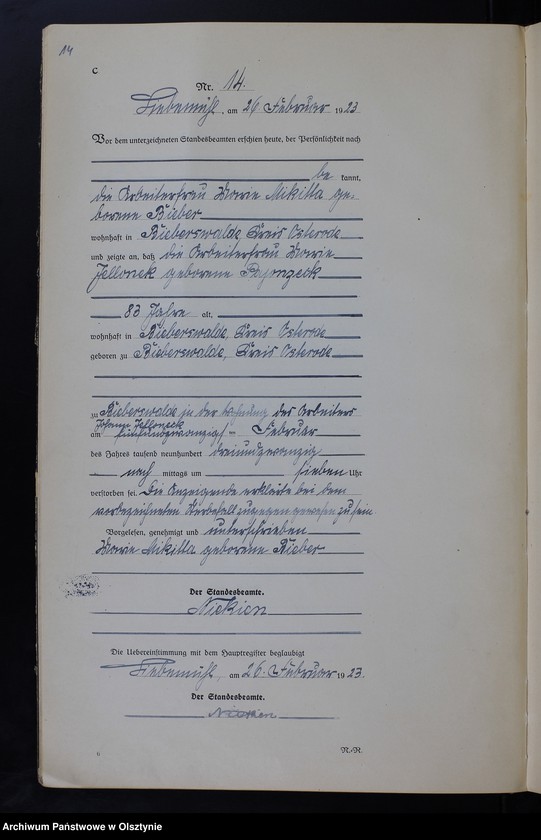 14
C
Nr. 14.
Liebemühl, am 26 Februar 1923
Vor dem unterzeichneten Standesbeamten erschien heute, der Persönlichkeit nach
be kannt,
die Arbeiterfrau Marie Mikilla ge-
borene Bieber
wohnhaft in Bieberswalde, Kreis Osterode
und zeigte an, daß die Arbeiterfrau Marie
Jelloneck geborene
83 Jahre alt,
wohnhaft in Bieberswalde, Kreis Osterode
geboren zu Bieberswalde, Kreis Osterode
zu Bieberswalde in der Wohnung des Arbeiters
Jelloneck
am fünfundzwanzig Februar
des Jahres tausend neunhundert dreiundzwanzig
nach mittags um sieben Uhr
verstorben sei. Die Anzeigende erklärte bei dem
vorbezeichneten Sterbefall zugegen gewesen zu sein.
Vorgelesen, genehmigt und unterschrieben
Marie Mikilla geborene Bieber
Der Standesbeamte.
Niekien
Die Uebereinstimmung mit dem Hauptregister beglaubigt
Liebemühl, am 26. Februar 1923.
Der Standesbeamte.
Niekien
6
N.-R.
Archiwum Państwowe w Olsztynie